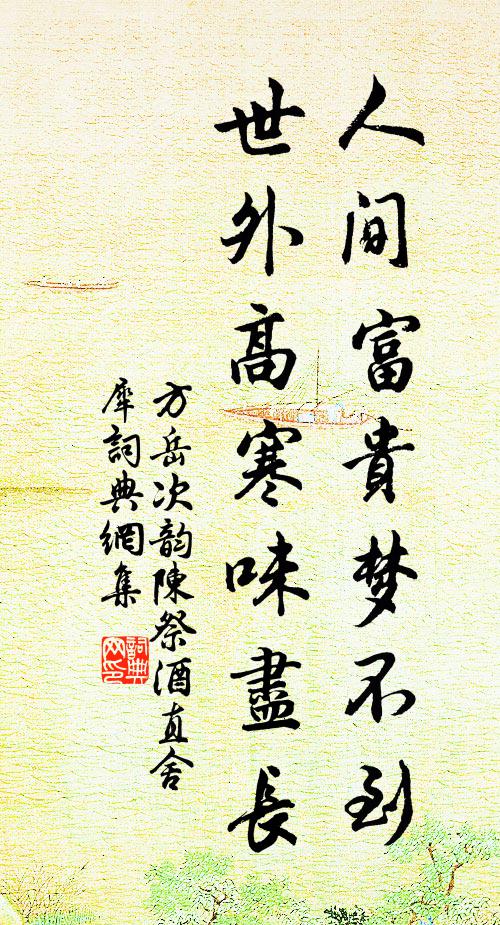 人间富貴梦不到
世外髙寒味盡長
方岳次韵陳祭酒直舍
犀詞典網集
詞典网印